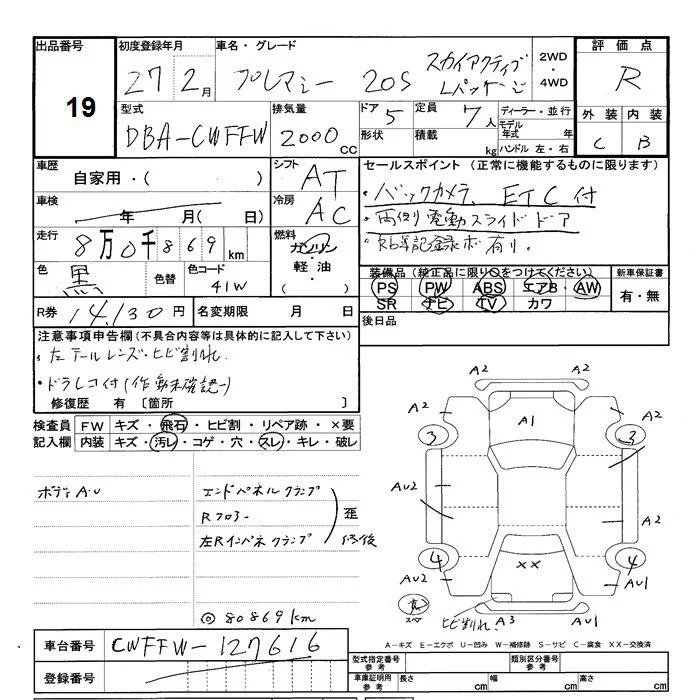 出品番号
19
初度登録年月
27 2月
車名・グレード
プレマシー 20S スカイアクティブ
Lパッケージ
2WD
・
4WD
評価点
R
外装 内装
C B
型式
DBA-CWFFW
排気量
2000 CC
ドア 5
形状
定員 7人
積載 kg
ディーラー・並行
モデル
年式 年
ハンドル 左・右
車歴
自家用・( )
シフト
AT
車検
年 月( 日)
冷房
AC
走行
8万0千869km
燃料
ガソリン
・
軽油・
( )
色
黒
色替
色コード
41W
R券 14,130円
名変期限 月 日
セールスポイント (正常に機能するものに限ります)
・バックカメラ、ETC付
・両側電動スライドドア
記録ボ有り。
装備品(純正品に限り○をつけてください)
PS PW ABS エアB AW
SR ナビ TV カワ
新車保証書
有・無
後日品
注意事項申告欄(不具合内容等は具体的に記入して下さい)
・左テールレンズ・ヒビ割れ.
・ドラレコ付(作動未確認)
修復歴 有 〔箇所 〕
検査員
記入欄
FW キズ・飛石・ヒビ割・リペア跡・×要
内装 キズ・汚レ・コゲ・穴・スレ・キレ・破レ
ボディA・U
エンドパネルクランプ
Rフロアー
左Rインパネクランプ
歪
修復
◎80869km
A2
A2 A2
A1
3 3
AU2
A2
4 4
AU2 ×× AU1
スペア
ヒビ割れ. A3 AU1
A-キズ E-エクボ U-凹み W-補修跡 S-サビ C-腐食 XX-交換済
車台番号 CWFFW-127616
登録番号
型式指定番号
参考
類別区分番号
参考
車庫証明用
参考
長さ cm 幅 cm 高さ cm